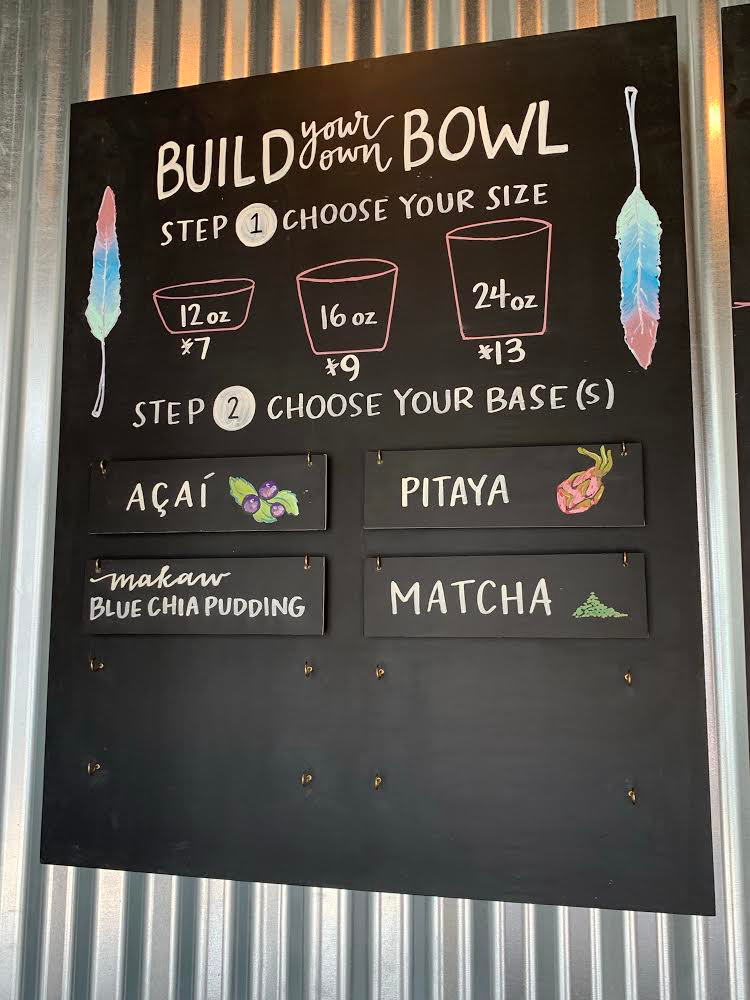 BUILD your own BOWL
STEP 1 CHOOSE YOUR SIZE
12 oz
$7
16 oz
$9
24 oz
$13
STEP 2 CHOOSE YOUR BASE(S)
AÇAÍ
PITAYA
makaw
BLUE CHIA PUDDING
MATCHA